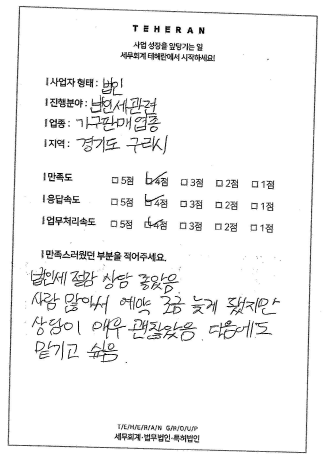 TEHERAN
사업 성장을 앞당기는 일
세무회계 테헤란에서 시작하세요!
사업자 형태 : 법인
진행분야 : 법인세관련
업종 : 가구판매업종
지역 : 경기도 구리시
만족도 □ 5점 □ 4점 □ 3점 □ 2점 □ 1점
응답속도 □ 5점 □ 4점 □ 3점 □ 2점 □ 1점
업무처리속도 □ 5점 □ 4점 □ 3점 □ 2점 □ 1점
만족스러웠던 부분을 적어주세요.
법인세 절감 상담 좋았음
사람 많아서 예약 조금 늦게 됐지만
상담이 매우 괜찮았음 다음에도
맡기고 싶음
TEHERAN GROUP
세무회계·법무법인·특허법인